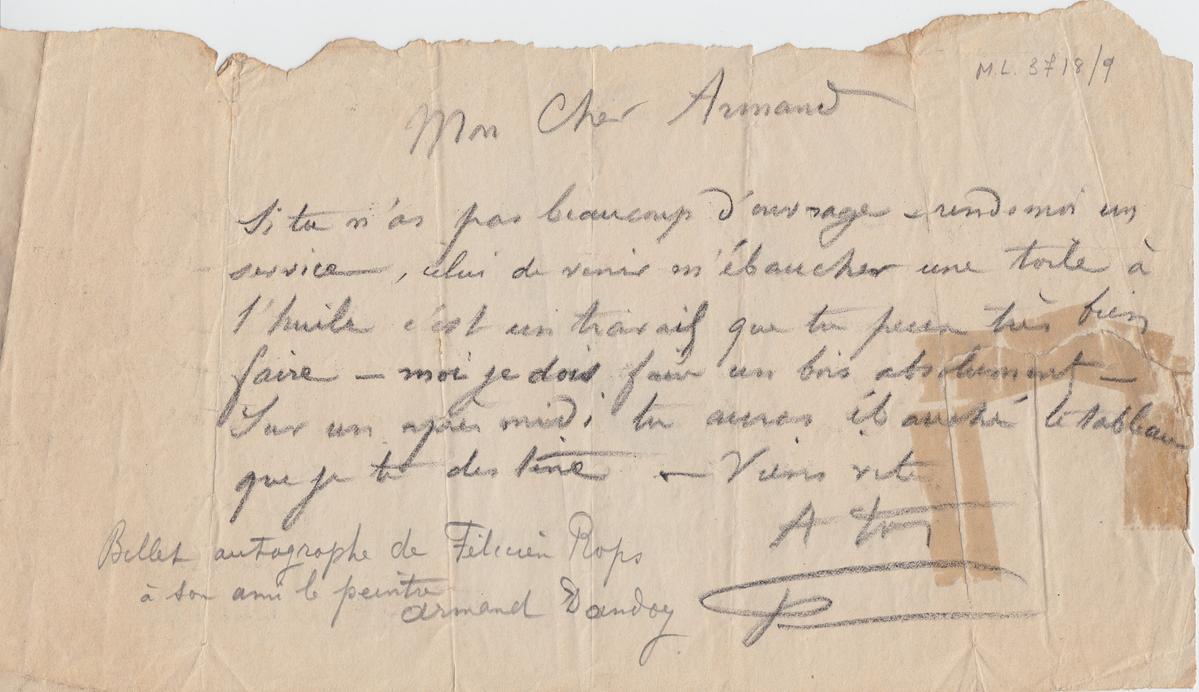 M.L. 3718/9
Mon Cher Armand
Si tu n'as pas beaucoup d'ouvrage – rends moi un
service –, celui de venir m'ébaucher une toile à
l'huile c'est un travail que tu peux très bien
faire – moi je dois faire un bois absolument –
Sur un après midi tu auras ébauché le tableau
que je te destine – Viens vite
A toi
Billet autographe de Félicien Rops
à son ami le peintre
Armand Dandoy